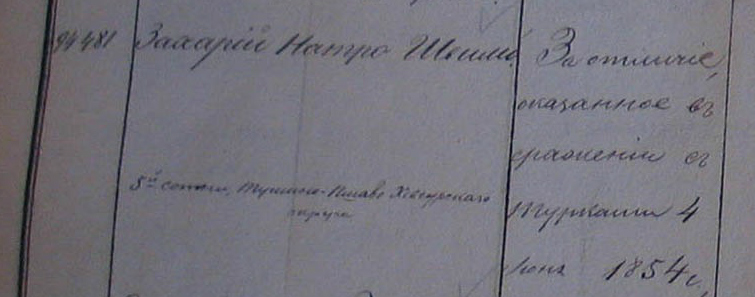 94481
Захарій Натро Швили
5й сотни, Тушино-Пшаво Хевсурскаго
округа
За отличіе,
оказанное въ
сраженіи съ
Турками 4
Іюня 1854 г.